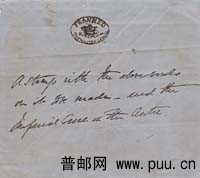 FRANKED
A stamp with the above words
on it to be made — and the
Imperial Arms in the Centre
普邮网 www.puu.cn